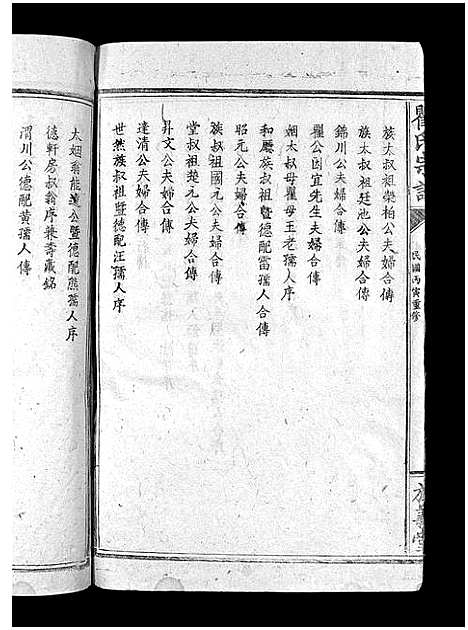 瞿氏宗譜
民國丙寅重修
族太叔祖榮柏公夫婦合傳
族太叔祖廷池公夫婦合傳
錦川公夫婦合傳
瞿公因宜先生夫婦合傳
姻太叔母瞿母王老孺人傳
和廳族叔祖暨德配雷孺人合傳
昭元公夫婦合傳
族叔祖國元公夫婦合傳
堂叔祖楚元公夫婦合傳
昇文公夫婦合傳
達清公夫婦合傳
世然族叔祖暨德配汪孺人序
太姻翁能遠公暨德配熊孺人序
德軒房叔翁序兼壽藏銘
渭川公德配黃孺人傳